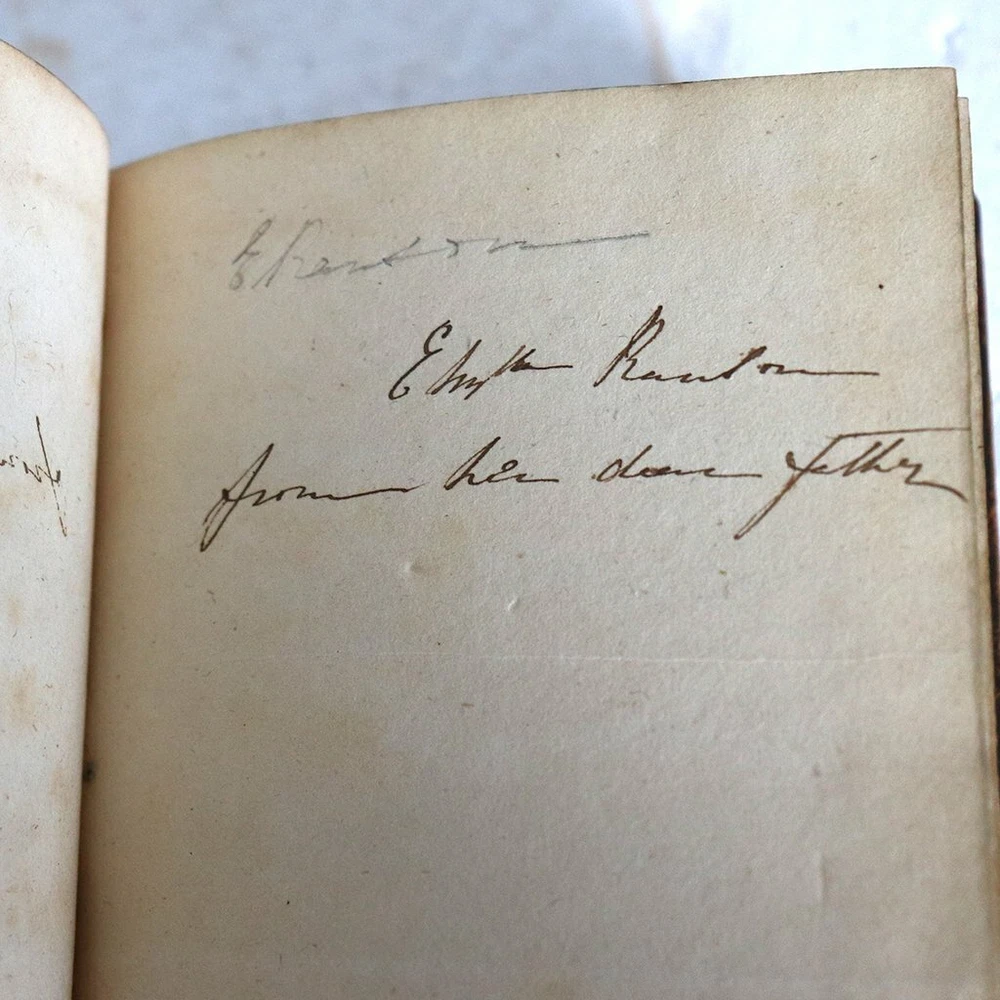 E Ranson
Elizth Ranson
from her dear father